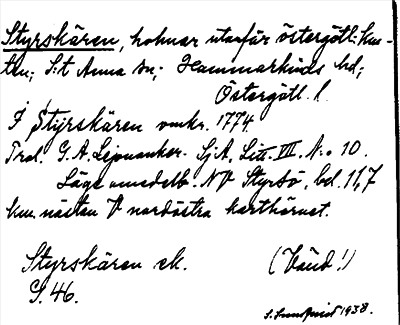 Styrskären, holmar utanför östergötl. kus-
ten; S:t Anna sn; Hammarkinds hd;
Östergötl. l.
F Styrskären omkr. 1774.
Trol. G. A. Lejonanker. Sj A, Litt. VII. N:o 10.
Läge omedelb. NV Styrsö, bel. 11,7
km. nästan V nordöstra karthörnet.
Styrskären ek. (Vänd!)
G. 46.
S. Lundqvist 1938.